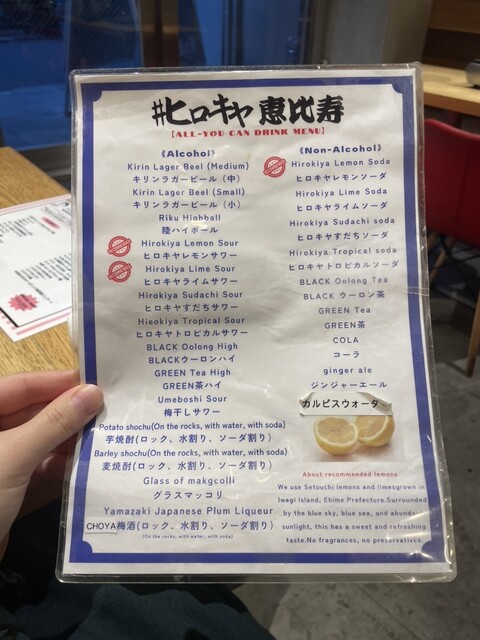 #ヒロキヤ 恵比寿
【ALL-YOU CAN DRINK MENU】
《Alcohol》
Kirin Lager Beel (Medium)
キリンラガービール（中）
Kirin Lager Beel (Small)
キリンラガービール（小）
Riku Highball
陸ハイボール
Hirokiya Lemon Sour
ヒロキヤレモンサワー
Hirokiya Lime Sour
ヒロキヤライムサワー
Hirokiya Sudachi Sour
ヒロキヤすだちサワー
Hieokiya Tropical Sour
ヒロキヤトロピカルサワー
BLACK Oolong High
BLACKウーロンハイ
GREEN Tea High
GREEN茶ハイ
Umeboshi Sour
梅干しサワー
Potato shochu(On the rocks, with water, with soda)
芋焼酎(ロック、水割り、ソーダ割り)
Barley shochu(On the rocks, with water, with soda)
麦焼酎(ロック、水割り、ソーダ割り)
Glass of makgcolli
グラスマッコリ
Yamazaki Japanese Plum Liqueur
CHOYA梅酒(ロック、水割り、ソーダ割り)
(On the rocks, with water, with soda)
《Non-Alcohol》
Hirokiya Lemon Soda
ヒロキヤレモンソーダ
Hirokiya Lime Soda
ヒロキヤライムソーダ
Hirokiya Sudachi soda
ヒロキヤすだちソーダ
Hirokiya Tropical soda
ヒロキヤトロピカルソーダ
BLACK Oolong Tea
BLACK ウーロン茶
GREEN Tea
GREEN茶
COLA
コーラ
ginger ale
ジンジャーエール
カルピスウォータ
About recommended lemons
We use Setouchi lemons and limesgrown in
Iwagi Island, Ehime Prefecture.Surrounded
by the blue sky, blue sea, and abundant
sunlight, this has a sweet and refreshing
taste.No fragrances, no preservatives.